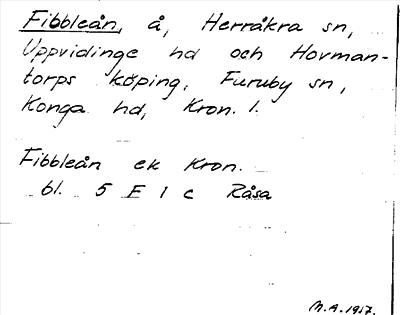 Fibbleån, å, Herråkra sn,
Uppvidinge hd och Hovman-
torps köping, Furuby sn,
Konga hd, Kron. l.
Fibbleån ek Kron.
bl. 5 E 1 c Råsa
M.A. 1957.